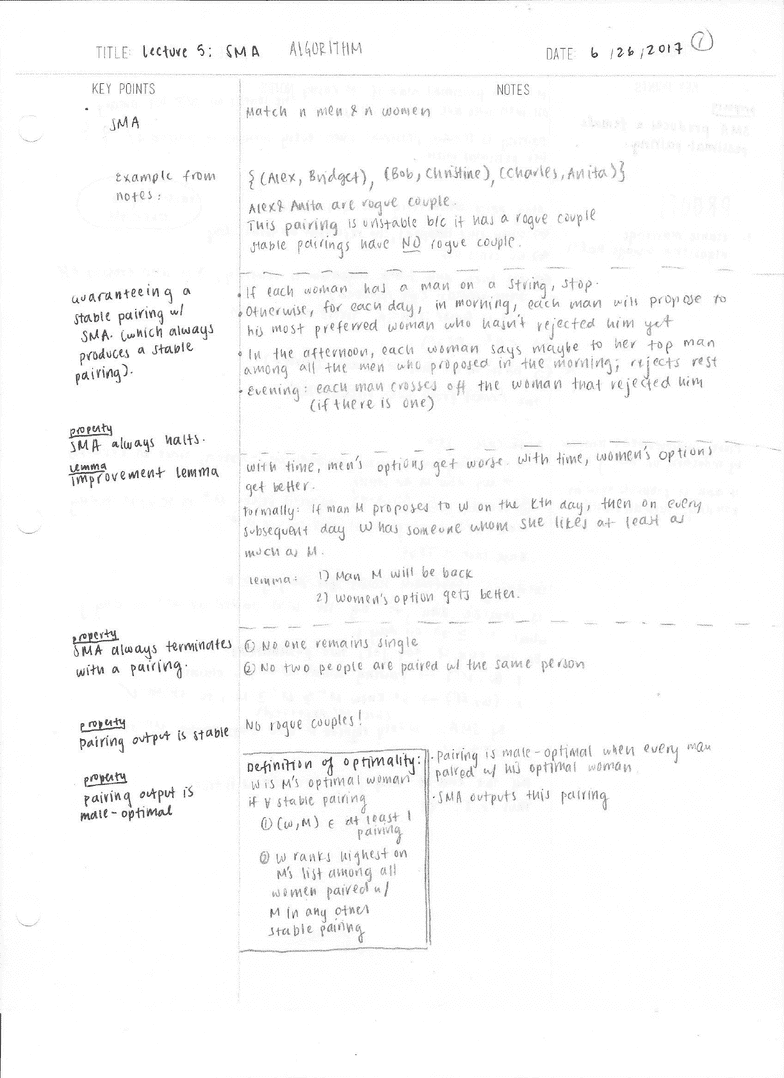 TITLE: Lecture 5: SMA ALGORITHM DATE: 6/26/2017 ①
KEY POINTS
NOTES
• SMA
Match n men & n women
Example from
notes:
{(Alex, Bridget), (Bob, Christine), (Charles, Anita)}
Alex & Anita are rogue couple.
This pairing is unstable b/c it has a rogue couple
stable pairings have NO rogue couple.
Guaranteeing a
stable pairing w/
SMA. (which always
produces a stable
pairing).
• If each woman has a man on a string, stop.
• Otherwise, for each day, in morning, each man will propose to
his most preferred woman who hasn't rejected him yet
• In the afternoon, each woman says maybe to her top man
among all the men who proposed in the morning; rejects rest
• Evening: each man crosses off the woman that rejected him
(if there is one)
property
SMA always halts.
lemma
improvement lemma
with time, men's options get worse. with time, women's options
get better.
Formally: If man M proposes to W on the kth day, then on every
subsequent day W has someone whom she likes at least as
much as M.
lemma: 1) Man M will be back
2) Women's option gets better.
property
SMA always terminates
with a pairing.
① No one remains single
② No two people are paired w/ the same person
property
pairing output is stable
No rogue couples!
property
pairing output is
male-optimal
Definition of optimality:
W is M's optimal woman
if ∀ stable pairing
① (W,M) ∈ at least 1
pairing
② W ranks highest on
M's list among all
women paired w/
M in any other
stable pairing
• Pairing is male-optimal when every man
paired w/ his optimal woman.
• SMA outputs this pairing